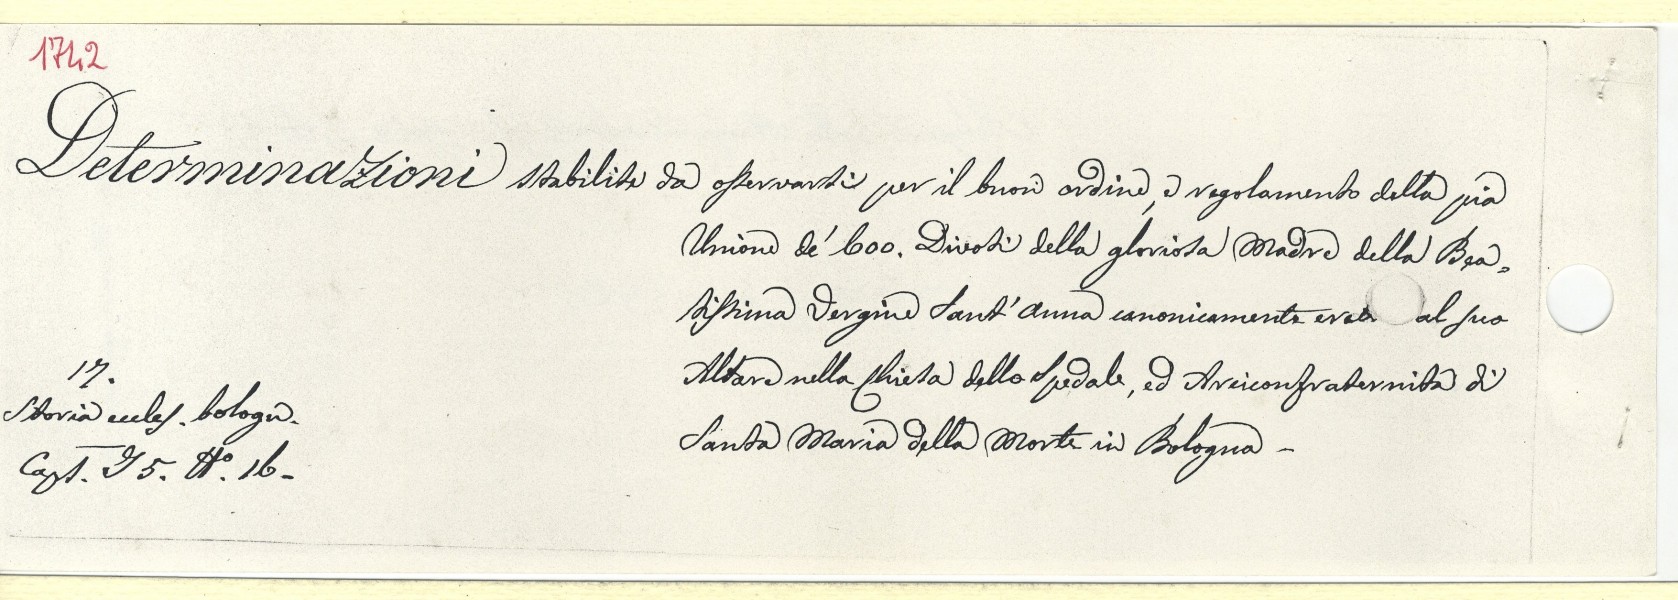 1742
Determinazioni stabilite da osservarsi per il buon ordine, e regolamento della pia
Unione de' 600. Divoti della gloriosa Madre della Bea=
tissima Vergine Sant'Anna canonicamente eret al suo
Altare nella Chiesa dello Spedale, ed Arciconfraternità di
Santa Maria della Morte in Bologna -
17.
Storia eccles. bologn.
Capt. I 5. N.º 16-